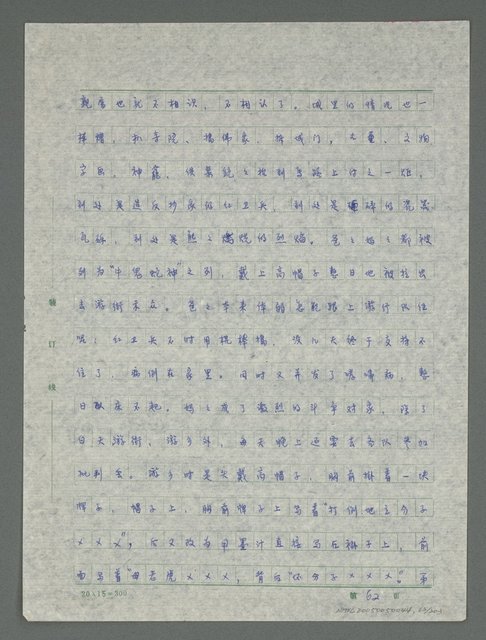 亲属也就不相识，不相认了。城里的情况也一
样糟，扒寺院、捣佛象、拆城门，大量文物
字画、神龛、佛像统统搬到马路上付之一炬，
到处是造反抄家的红卫兵，到处是砸碎的瓷器
瓦砾，到处是熊熊燃烧的烈焰。爸爸妈妈都被
列为“牛鬼蛇神”之列，戴上高帽子整日地被拉出
去游街示众。爸爸本来体弱怎能跟上游行队伍
呢！红卫兵不时用棍棒捅，没几天终于支持不
住了，病倒在家里。同时又并发了哮喘病，整
日卧床不起。妈妈成了激烈的斗争对象，除了
白天游街、游乡外，每天晚上还要去各队参加
批判会。游乡时是头戴高帽子，胸前挂着一块
牌子，帽子上，胸前牌子上写着“打倒地主分子
×××”，后又改为用墨汁直接写在褂子上，前
面写着“母老虎×××，背后“坏分子×××”。第
20×15=300
第 62 页
装
订
线